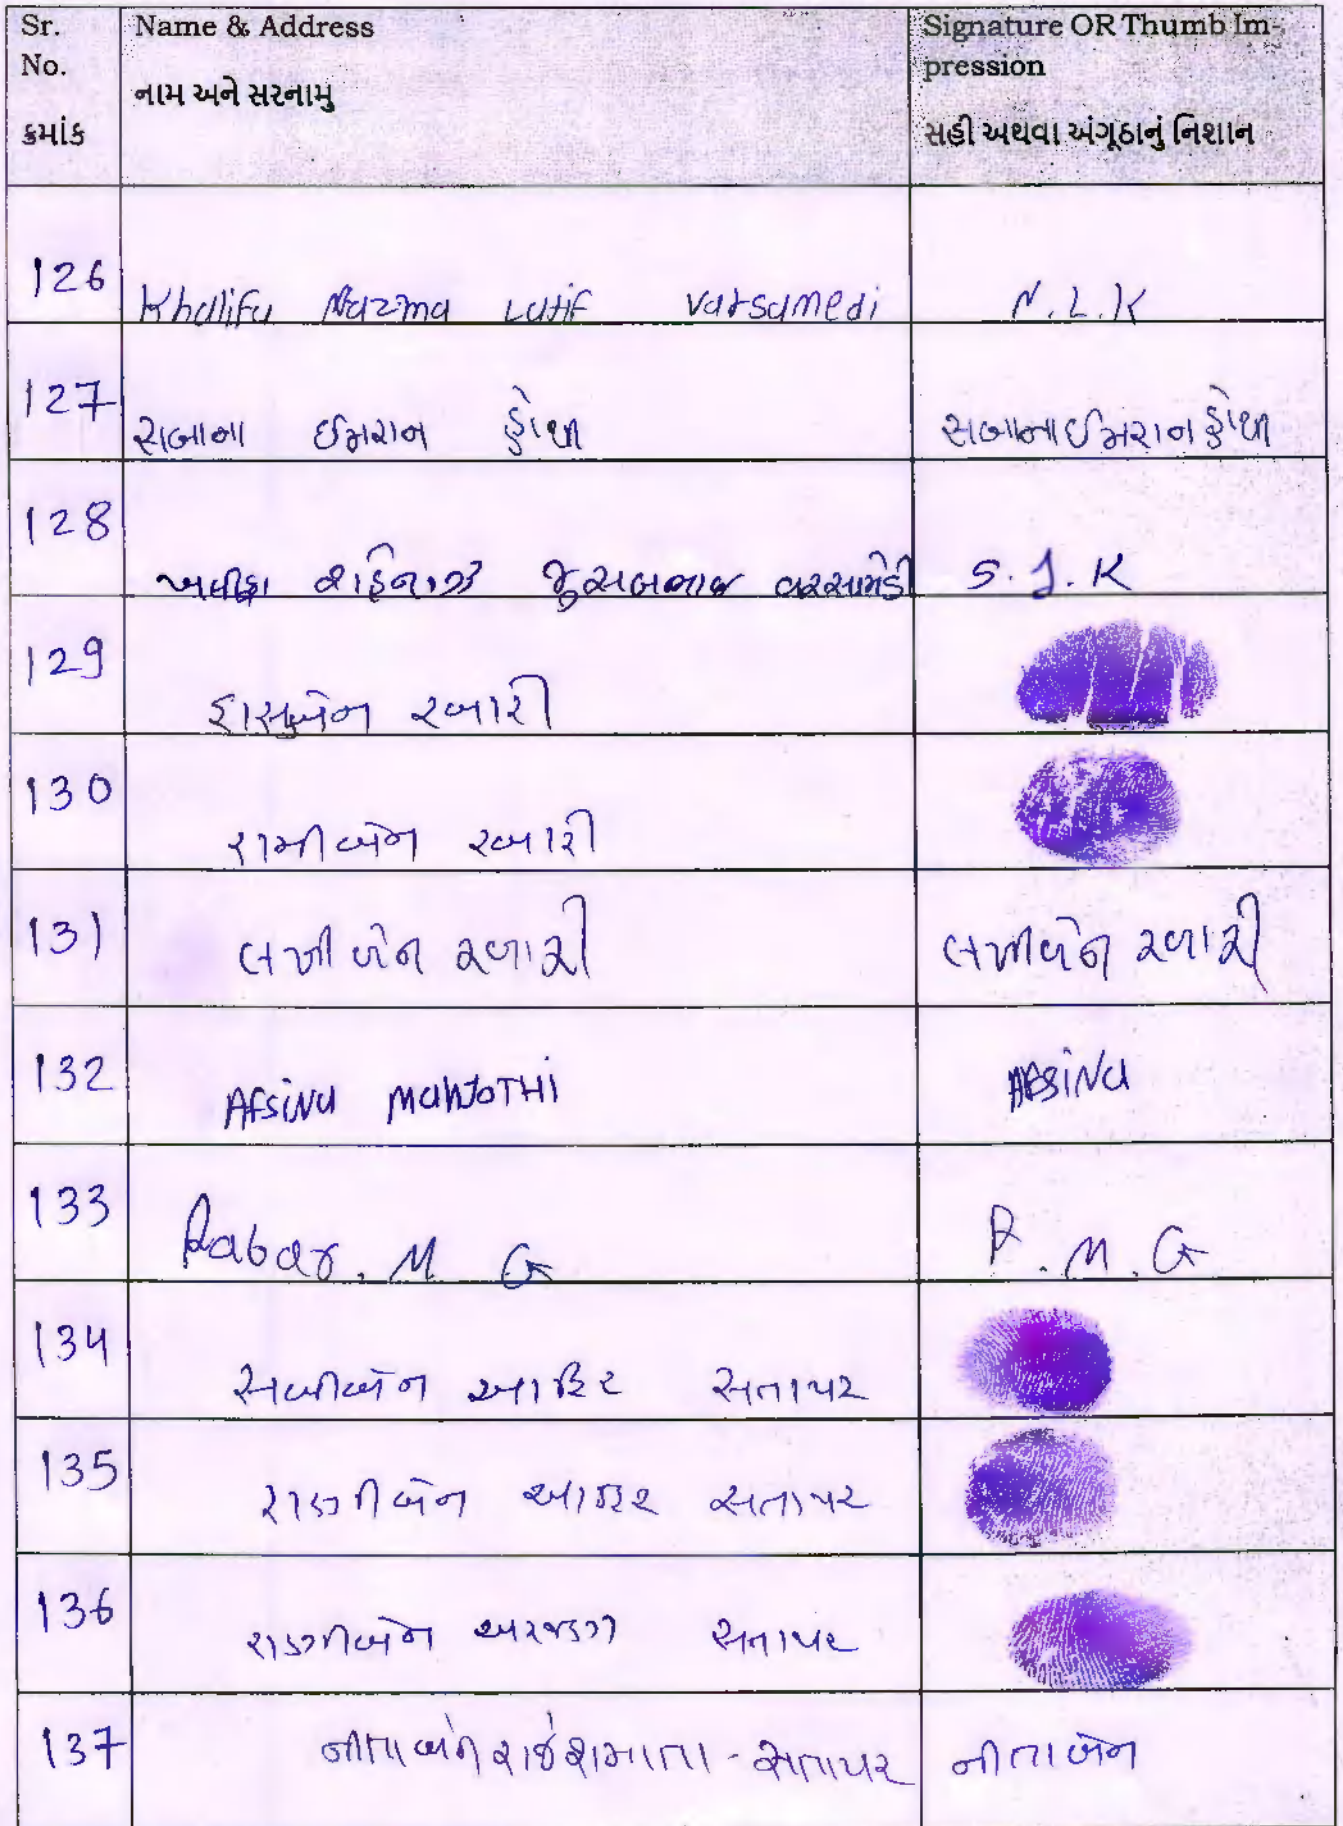 Sr. No. ક્રમાંક Name & Address નામ અને સરનામુ Signature OR Thumb Im-pression સહી અથવા અંગૂઠાનું નિશાન
126 Khalifa Nazma Latif varsamedi N.L.K
127 સબાના ઈમરાન સબાના ઈમરાન
128 ખલીફા શાહેનાઝ વરસામેડી S.J.K
129 હાસુબેન રબારી
130 રામીબેન રબારી
131 લખીબેન રબારી લખીબેન રબારી
132 AFSiNa MaNJOTHi AFSiNa
133 Rabar. M G R.M.G
134 સબીબેન આહિર સતાપર
135 રાજીબેન આહિર સતાપર
136 સતાપર
137 નીતાબેન રાજેશ માતા - સતાપર નીતાબેન